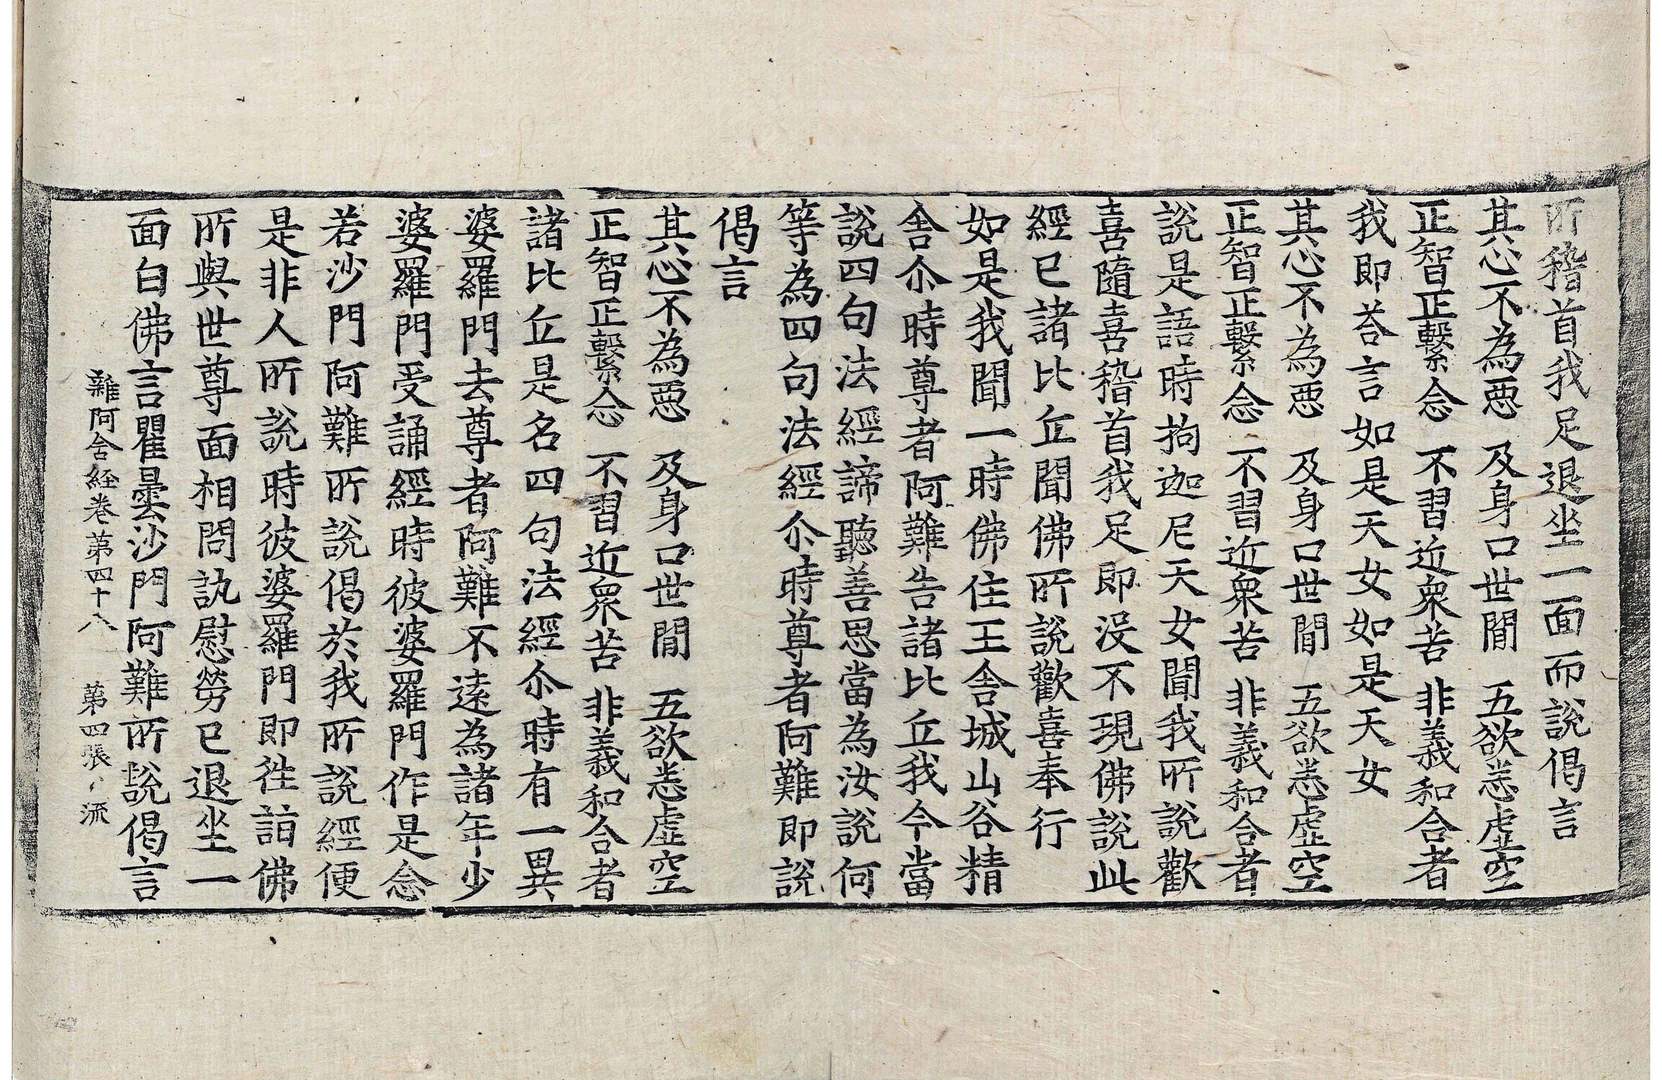 所稽首我足退坐一面而說偈言
其心不為惡　及身口世間　五欲悉虛空
正智正繫念　不習近衆苦　非義和合者
我即荅言如是天女如是天女
其心不為惡　及身口世間　五欲悉虛空
正智正繫念　不習近衆苦　非義和合者
說是語時拘迦尼天女聞我所說歡
喜隨喜稽首我足即没不現佛說此
經已諸比丘聞佛所說歡喜奉行
如是我聞一時佛住王舍城山谷精
舍尒時尊者阿難告諸比丘我今當
說四句法經諦聽善思當為汝說何
等為四句法經尒時尊者阿難即說
偈言
其心不為惡　及身口世間　五欲悉虛空
正智正繫念　不習近衆苦　非義和合者
諸比丘是名四句法經尒時有一異
婆羅門去尊者阿難不遠為諸年少
婆羅門受誦經時彼婆羅門作是念
若沙門阿難所說偈於我所說經便
是非人所說時彼婆羅門即徃詣佛
所與世尊面相問訊慰勞已退坐一
面白佛言瞿曇沙門阿難所說偈言
雜阿含経卷第四十八　第四張　流